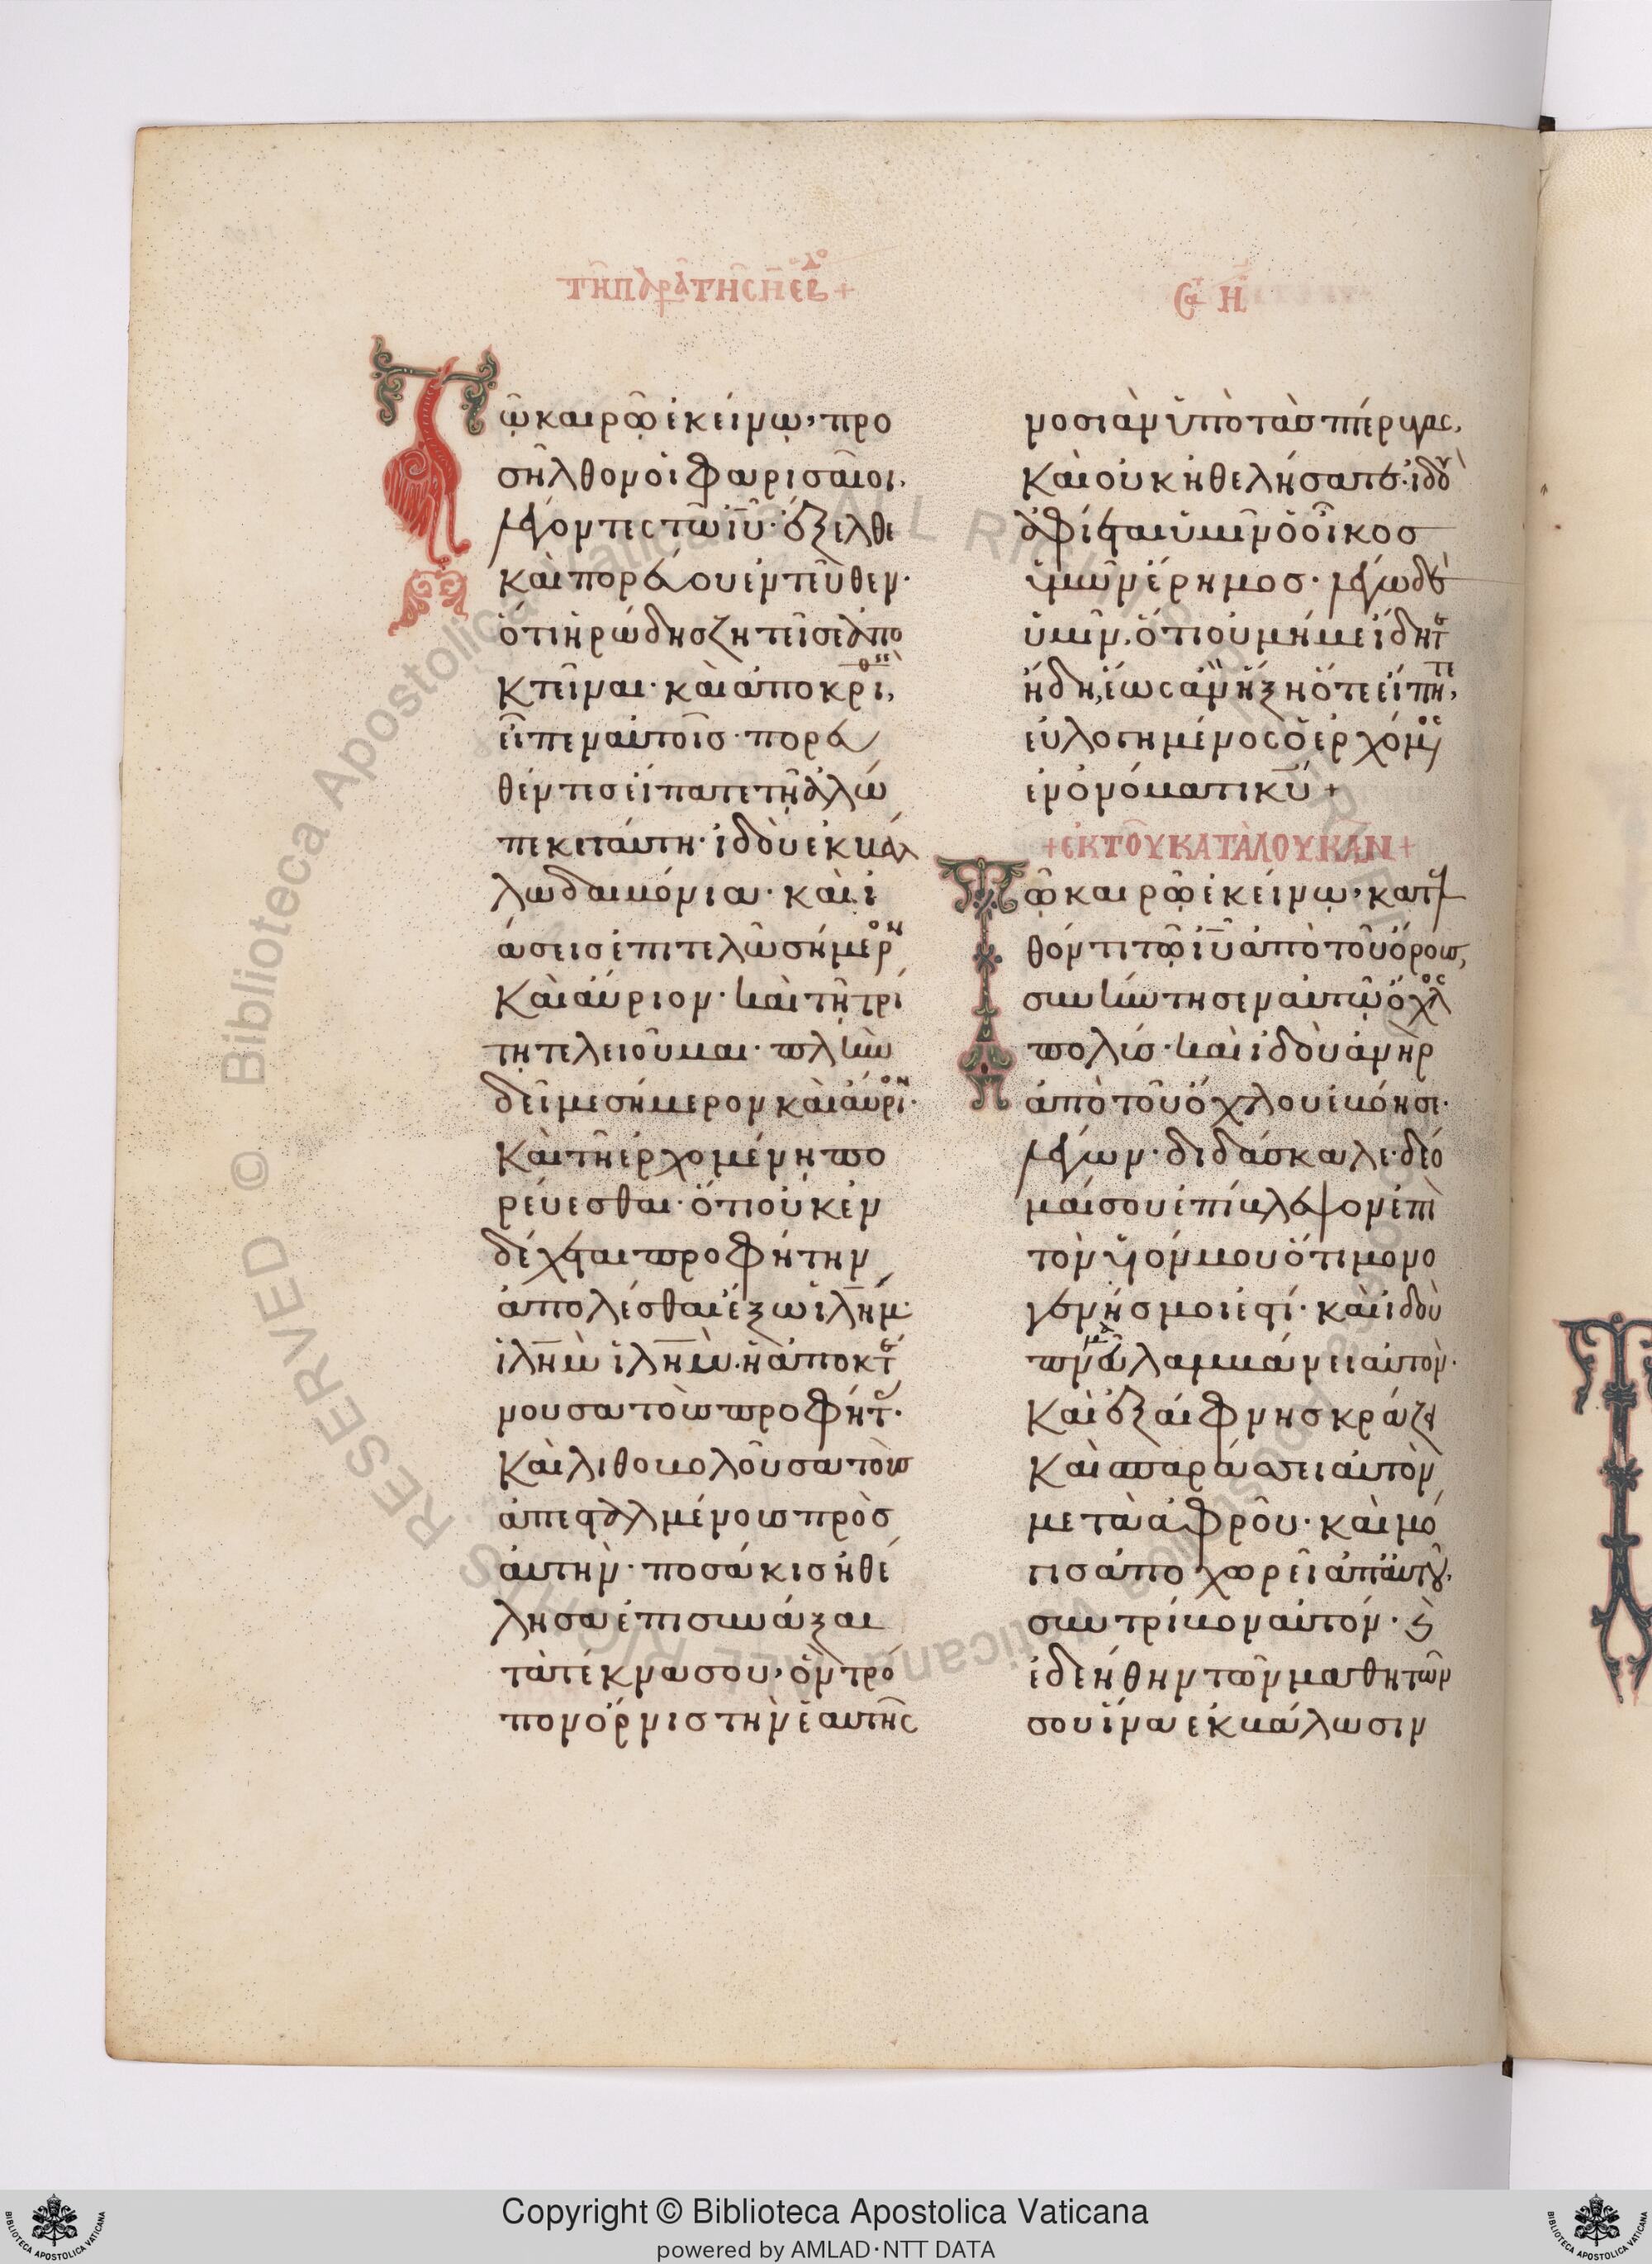 τῆ παρα τῆς η ἑβδο +
Τῷ καιρῷ ἐκείνω, προ
σῆλθον οἱ φαρισαῖοι,
λέγοντες τῶ ἰῦ· ἔξελθε
καὶ πορεύου ἐντεῦθεν·
ὅτι ἡρώδης ζητεῖ σε ἀπο
κτεῖναι· καὶ ἀποκριθεὶς,
εἶπεν αὐτοῖς· πορευ
θέντες εἴπατε τῆ ἀλώ
πεκι ταύτη· ἰδοὺ ἐκβάλ
λω δαιμόνια· καὶ ἰ
άσεις ἐπιτελῶ σήμερον
καὶ αὔριον· καὶ τῆ τρί
τη τελειοῦμαι· πλὴν
δεῖ με σήμερον καὶ αὔριον·
καὶ τῆ ἐρχομένη πο
ρεύεσθαι· ὅτι οὐκ ἐν
δέχεται προφήτην
ἀπολέσθαι ἔξω ἱλήμ·
ἱλήμ ἱλήμ· ἡ ἀποκτέ
νουσα τοὺς προφήτ·
καὶ λιθοβολοῦσα τοὺς
ἀπεσταλμένους πρὸς
αὐτήν· ποσάκις ἠθέ
λησα ἐπισυνάξαι
τὰ τέκνα σου, ὃν τρό
πον ὄρνις τὴν ἑαυτῆς
Σα η
νοσιὰν ὑπὸ τὰς πτέρυγας,
καὶ οὐκ ἠθελήσατε· ἰδοὺ
ἀφίεται ὑμῖν ὁ οἶκος
ὑμῶν ἔρημος· λέγω δὲ
ὑμῖν, ὅτι οὐ μή με ἴδητε
ἤδη, ἕως ἂν ἥξη ὅτε εἴπητε,
εὐλογημένος ὁ ἐρχόμενος
ἐν ὀνόματι κῦ +
+ ἐκ τοῦ κατὰ λουκᾶν +
Τῷ καιρῷ ἐκείνω, κατελ
θόντι τῷ ἰῦ ἀπὸ τοῦ ὄρους,
συνήντησεν αὐτῶ ὄχλος
πολύς· καὶ ἰδοὺ ἀνὴρ
ἀπὸ τοῦ ὄχλου ἐβόησε·
λέγων· διδάσκαλε· δέο
μαί σου ἐπίβλεψον ἐπὶ
τὸν υἱόν μου ὅτι μονο
γενής μοι ἐστί· καὶ ἰδοὺ
πνεῦμα λαμβάνει αὐτόν·
καὶ ἐξαίφνης κράζει
καὶ σπαράσσει αὐτὸν
μετὰ ἀφροῦ· καὶ μό
γις ἀποχωρεῖ ἀπ᾽ αὐτοῦ,
συντρίβον αὐτόν· ϗ
ἐδεήθην τῶν μαθητῶν
σου ἵνα ἐκβάλωσιν
Copyright © Biblioteca Apostolica Vaticana
powered by AMLAD·NTT DATA